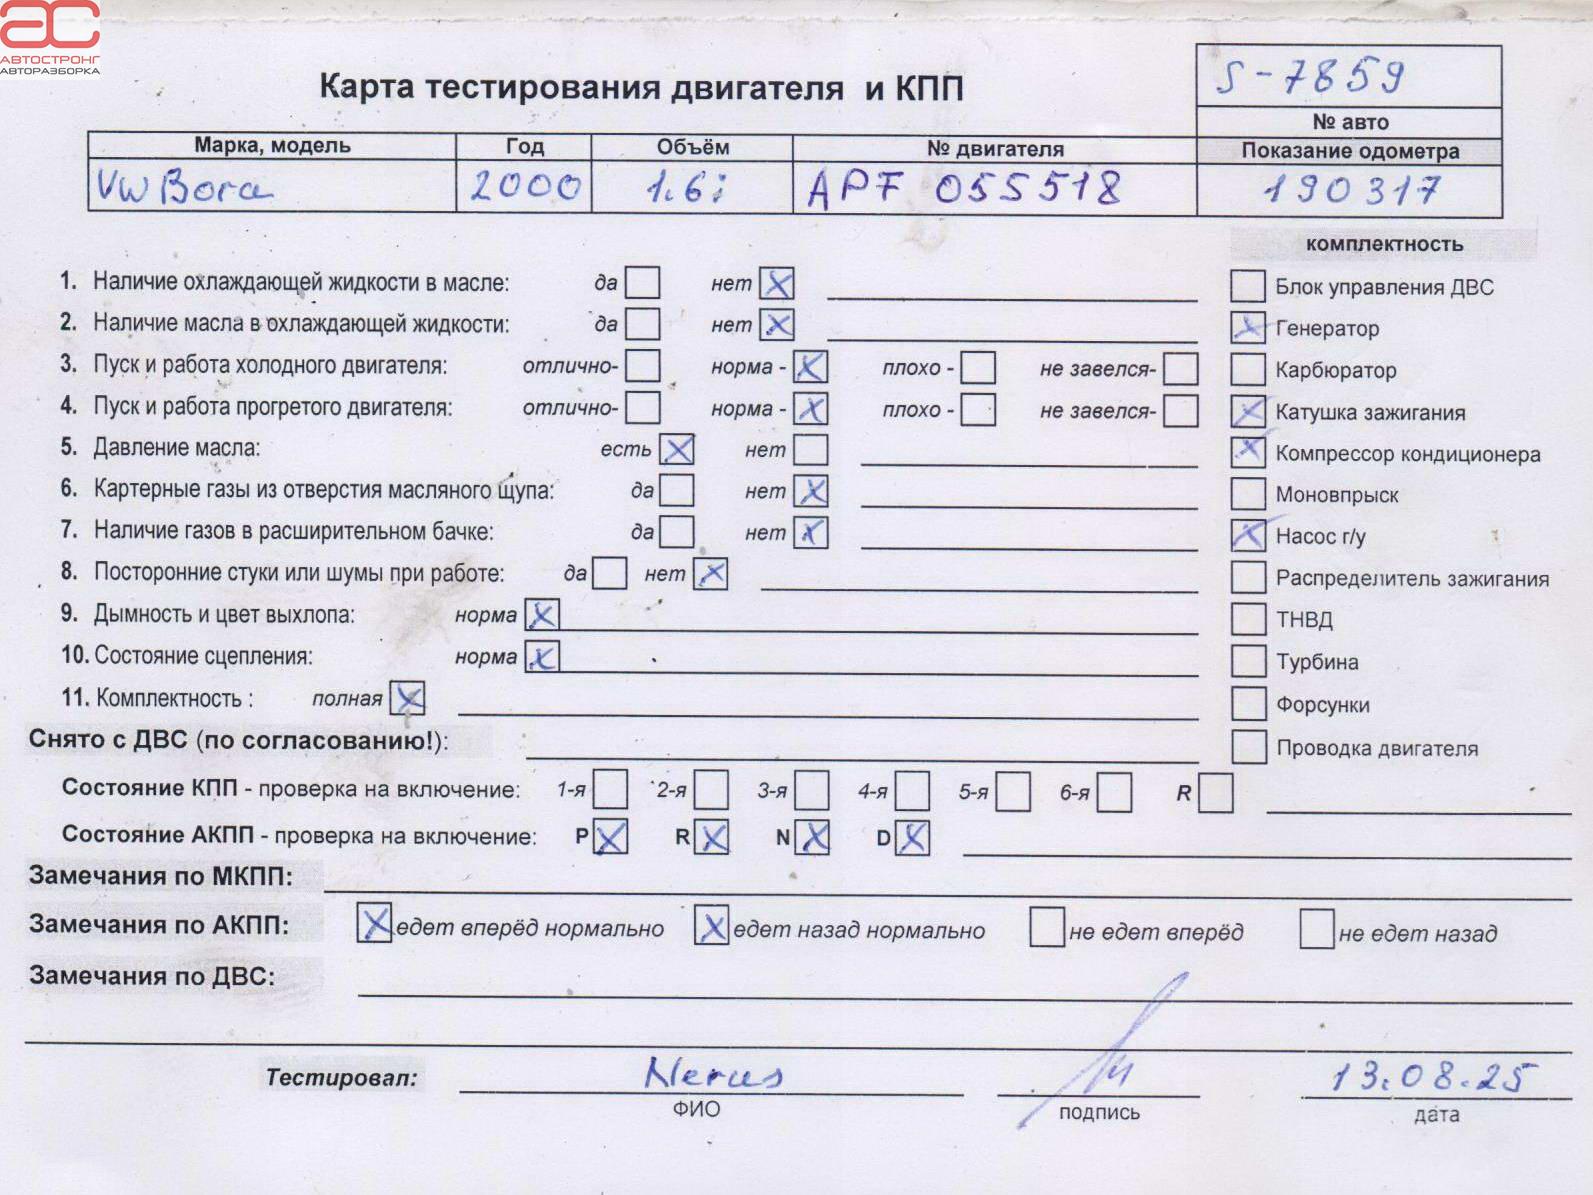 АВТОСТРОНГ
АВТОРАЗБОРКА
Карта тестирования двигателя и КПП
S-7859
№ авто
Марка, модель Год Объём № двигателя Показание одометра
VW Bora 2000 1.6i APF 055518 190317
комплектность
1. Наличие охлаждающей жидкости в масле: да нет
Блок управления ДВС
2. Наличие масла в охлаждающей жидкости: да нет
Генератор
3. Пуск и работа холодного двигателя: отлично- норма - плохо - не завелся-
Карбюратор
4. Пуск и работа прогретого двигателя: отлично- норма - плохо - не завелся-
Катушка зажигания
5. Давление масла: есть нет
Компрессор кондиционера
6. Картерные газы из отверстия масляного щупа: да нет
Моновпрыск
7. Наличие газов в расширительном бачке: да нет
Насос г/у
8. Посторонние стуки или шумы при работе: да нет
Распределитель зажигания
9. Дымность и цвет выхлопа: норма
ТНВД
10. Состояние сцепления: норма
Турбина
11. Комплектность : полная
Форсунки
Снято с ДВС (по согласованию!):
Проводка двигателя
Состояние КПП - проверка на включение: 1-я 2-я 3-я 4-я 5-я 6-я R
Состояние АКПП - проверка на включение: P R N D
Замечания по МКПП:
Замечания по АКПП: едет вперёд нормально едет назад нормально не едет вперёд не едет назад
Замечания по ДВС:
Тестировал: 13.08.25
ФИО подпись дата